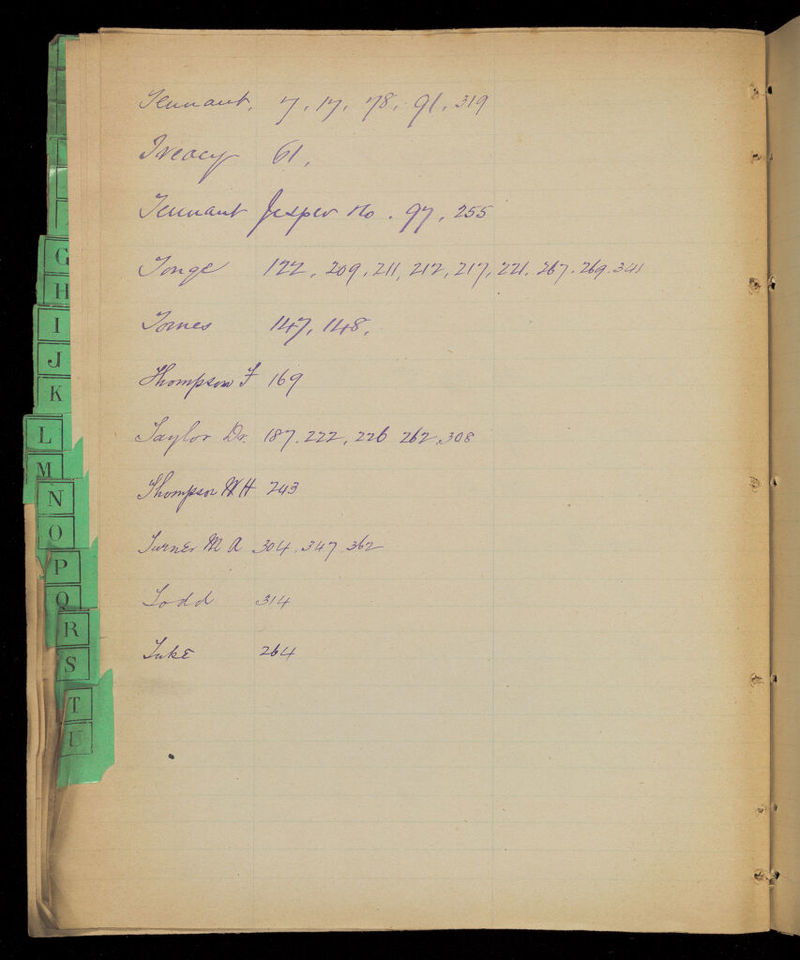 Tennant. 7, 17, 78, 91, 319
Treacy 61,
Tennant Jasper No. 97, 255
Tonge 122, 209, 211, 212, 217, 221, 267. 269. 341
Tomes 147, 148,
Thompson F 169
Taylor Dr. 187. 222, 226 262, 308
Thompson W H 243
Turner M A 304. 347 362
Todd 314
Tuke 264
G
H
I
J
K
L
M
N
O
P
Q
R
S
T
U